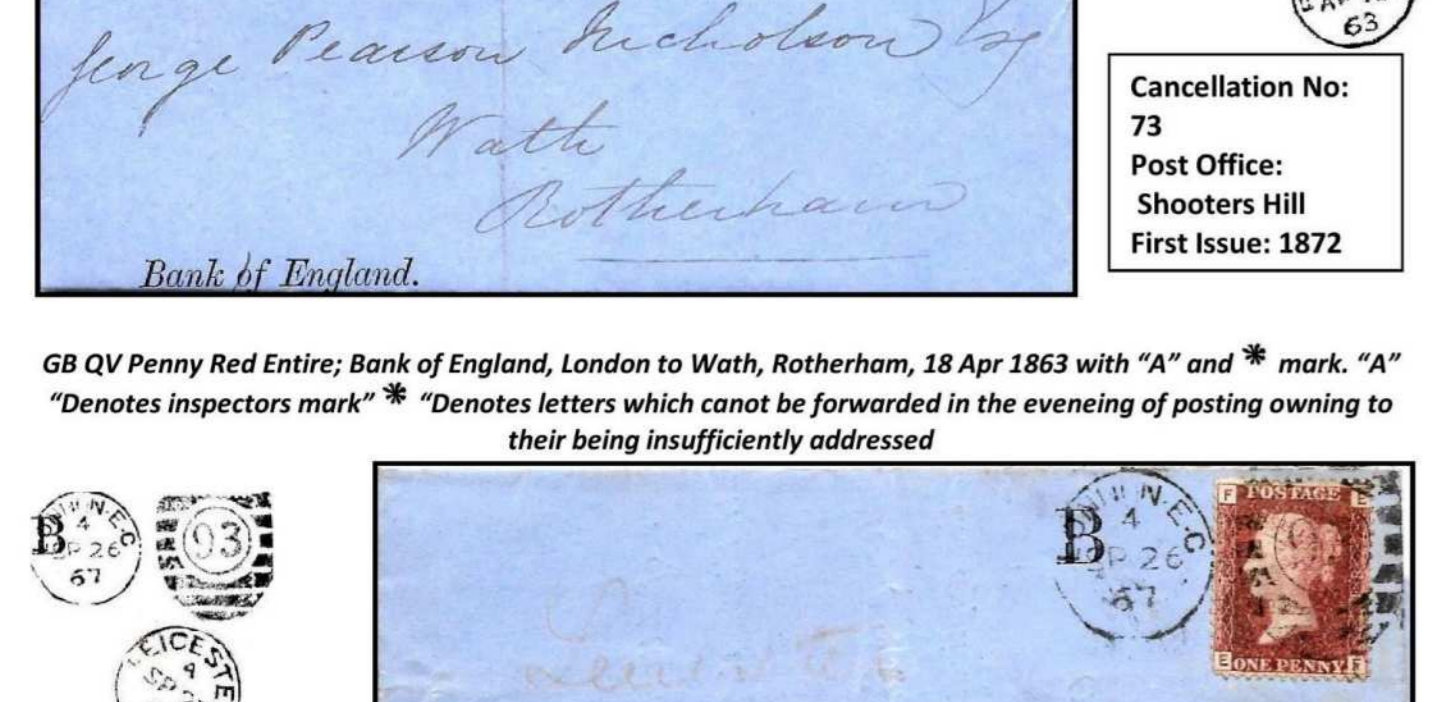 AP
63
George Pearson Nicholson Esq
Wath
Rotherham
Bank of England.
Cancellation No:
73
Post Office:
Shooters Hill
First Issue: 1872
GB QV Penny Red Entire; Bank of England, London to Wath, Rotherham, 18 Apr 1863 with “A” and * mark. “A”
“Denotes inspectors mark” * “Denotes letters which canot be forwarded in the eveneing of posting owning to
their being insufficiently addressed
B
N.E.C
4
SP 26
67
93
EICESTE
4
SP
B
N.E.C
4
SP 26
67
F POSTAGE E
E ONE PENNY F